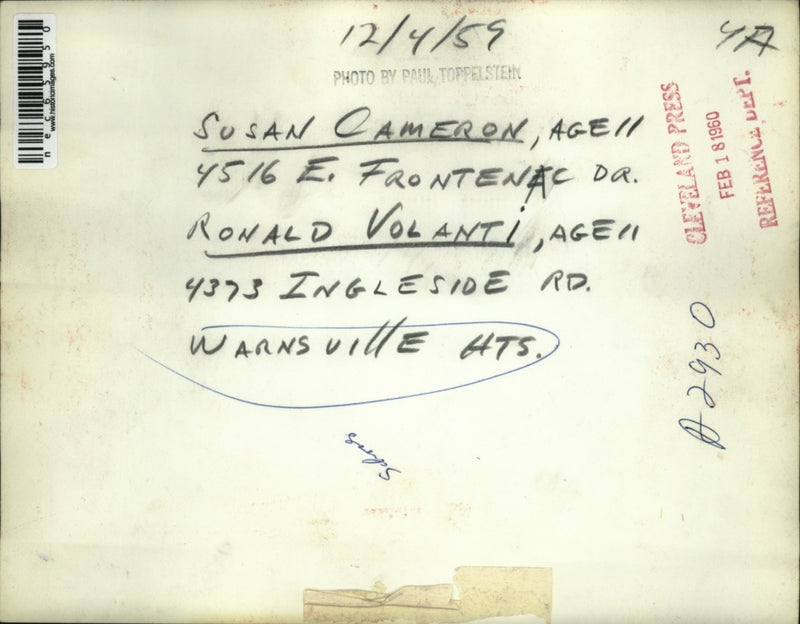 12/4/59
YA
PHOTO BY PAUL TOPPELSTEIN
SUSAN CAMERON, AGE 11
4516 E. FRONTENAC DR.
RONALD VOLANTI, AGE 11
4373 INGLESIDE RD.
WARNSVILLE HTS.
CLEVELAND PRESS
FEB 18 1960
REFERENCE DEPT.
A2930
Schools
www.historicimages.com
nec65950